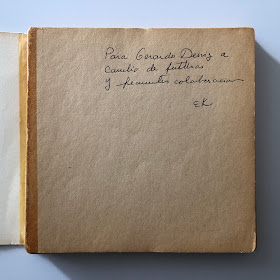 Para Gerardo Deniz a
cambio de futuras
y frecuentes colaboraciones
EK